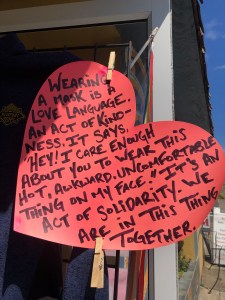 WEARING
A MASK IS A
LOVE LANGUAGE.
AN ACT OF KIND-
NESS. IT SAYS,
"HEY! I CARE ENOUGH
ABOUT YOU TO WEAR THIS
HOT, AWKWARD, UNCOMFORTABLE
THING ON MY FACE." IT'S AN
ACT OF SOLIDARITY. WE
ARE IN THIS THING
TOGETHER.